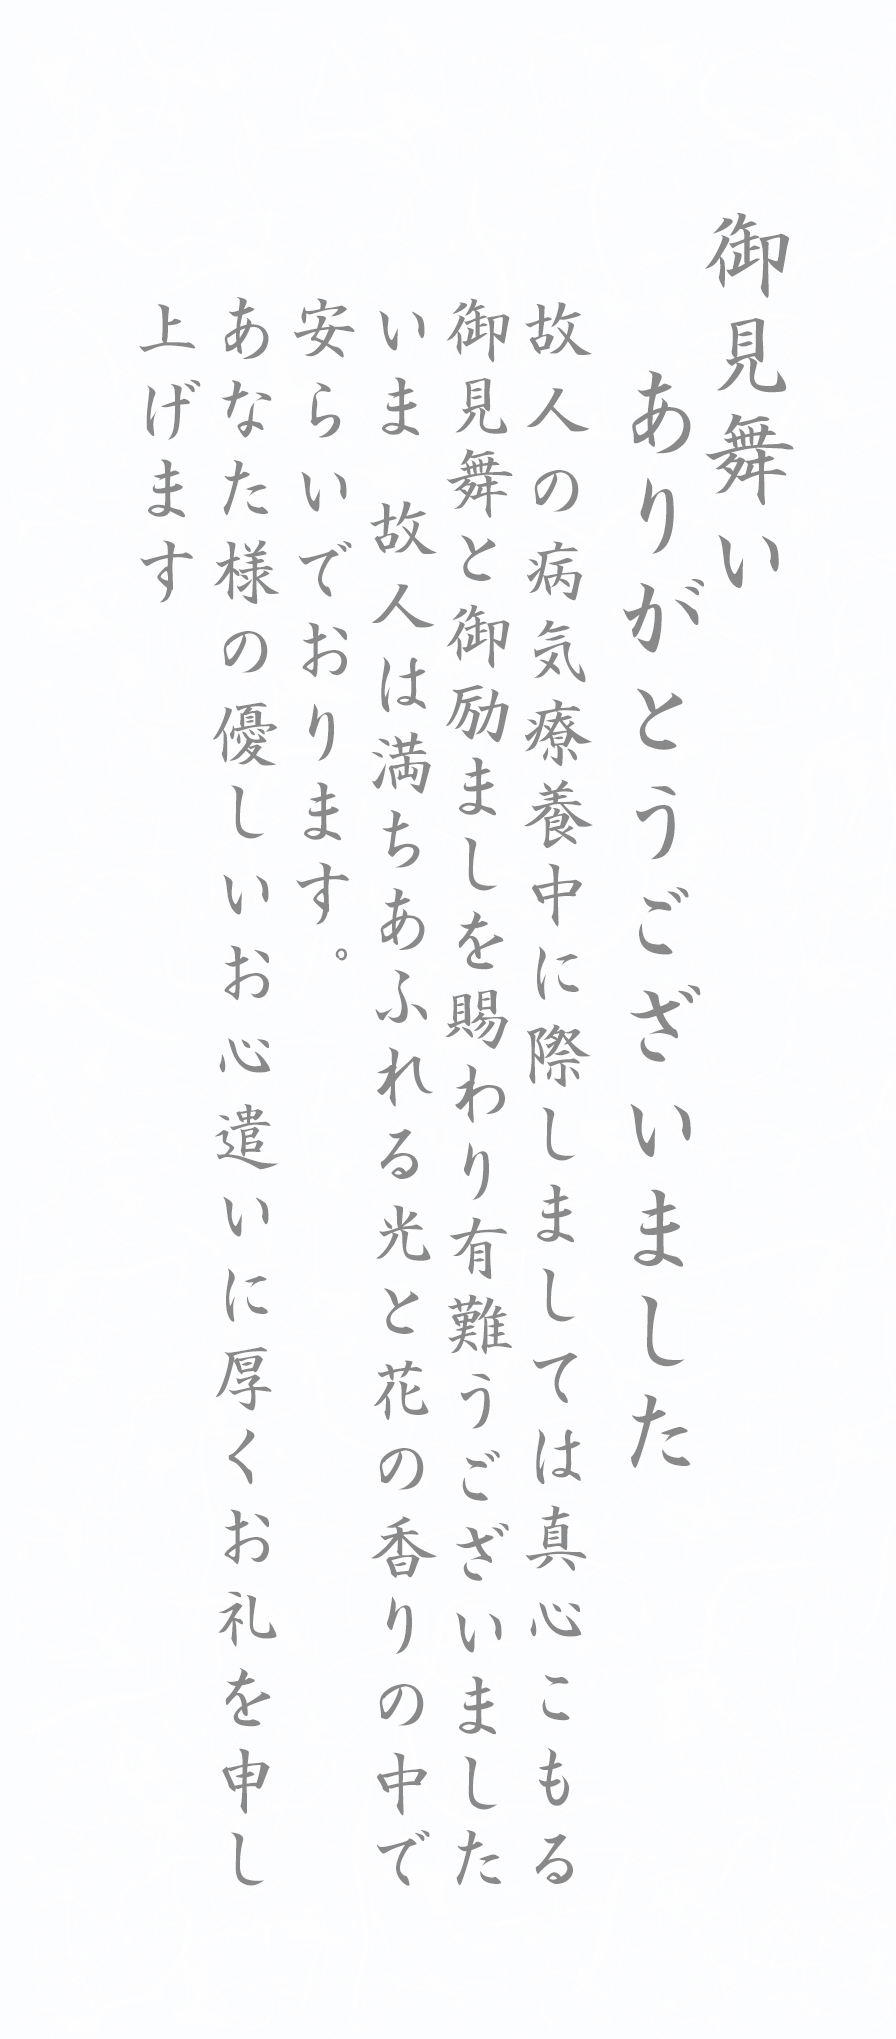 御見舞い
ありがとうございました
故人の病気療養中に際しましては真心こもる
御見舞と御励ましを賜わり有難うございました
いま　故人は満ちあふれる光と花の香りの中で
安らいでおります。
あなた様の優しいお心遣いに厚くお礼を申し
上げます